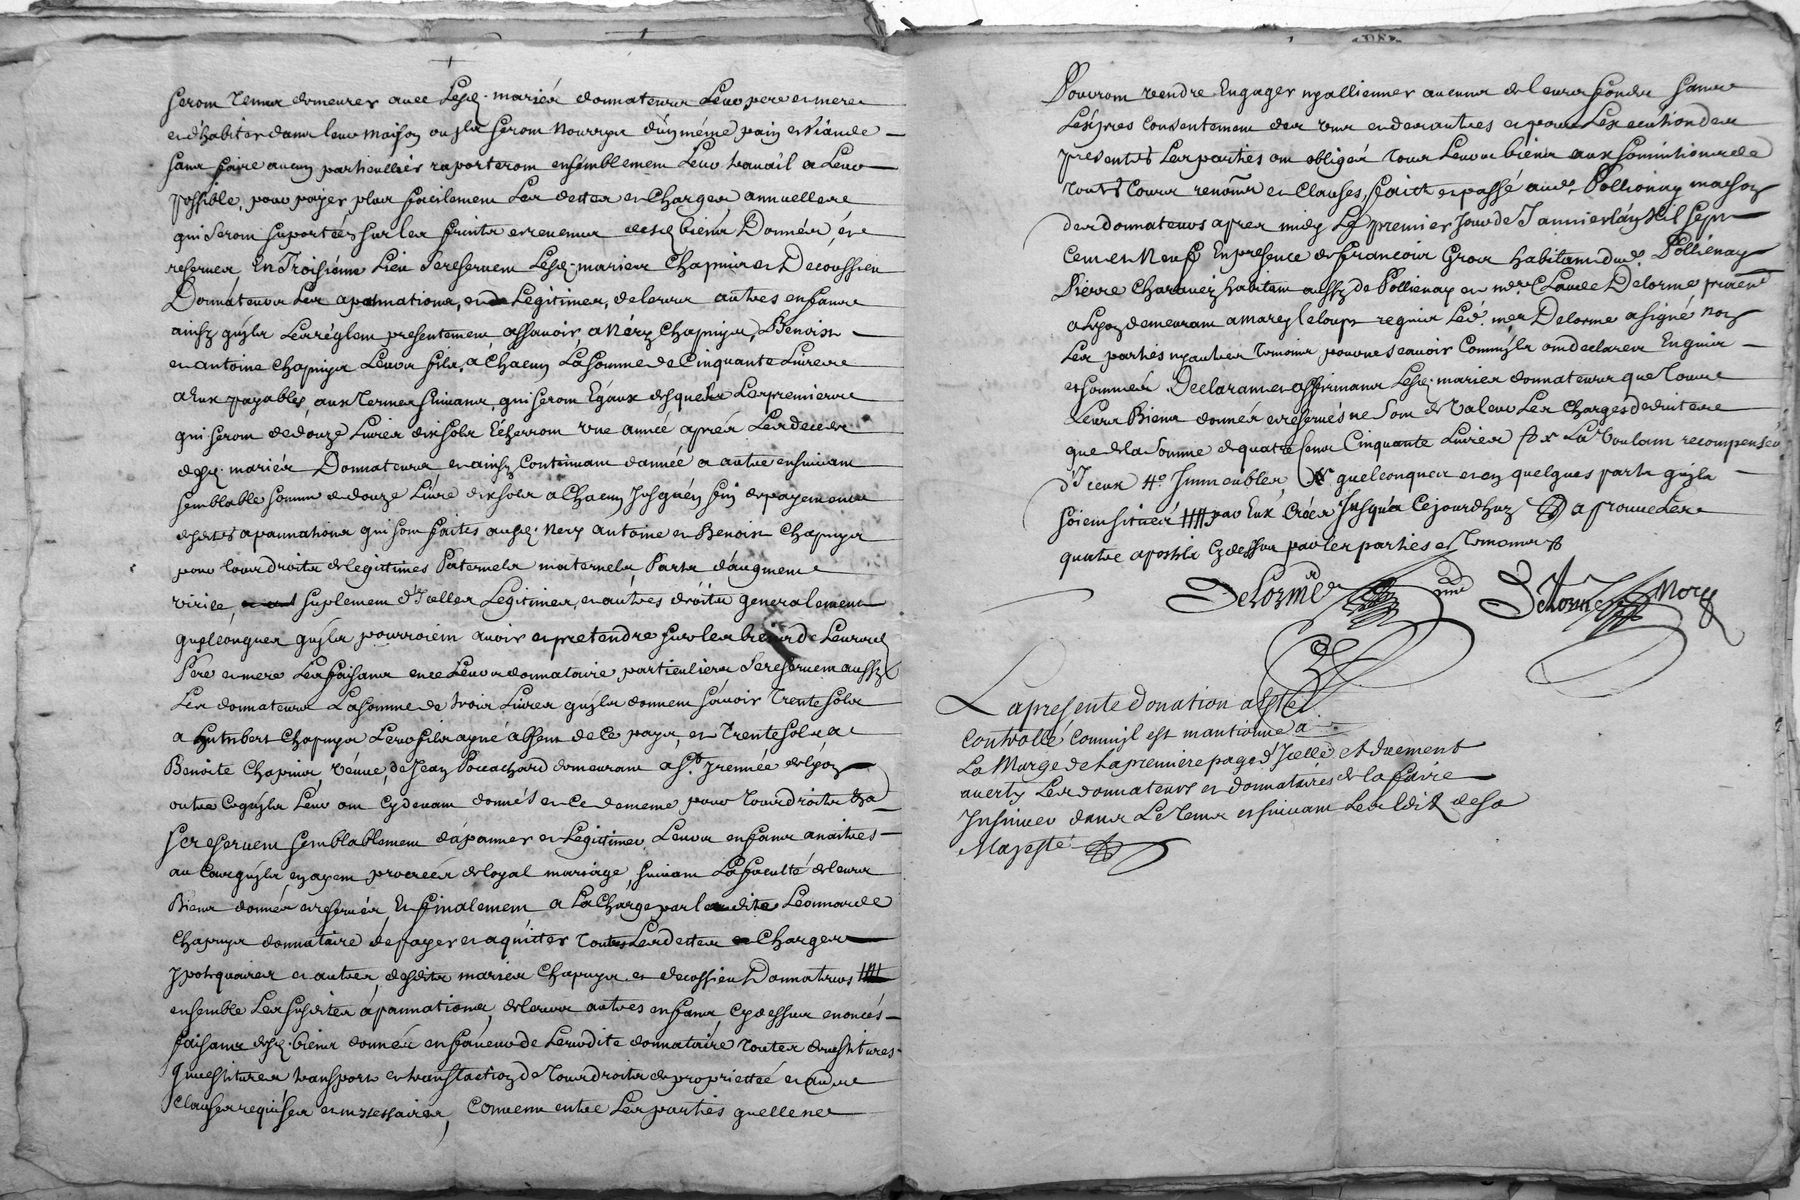 seront tenus demeurer avec Lesd. mariés donnateurs Leur pere et mere
et d'habiter dans leur maison ou jls seront nourrys d'un même pain et viande
sans faire aucun particullier raporteront ensemblement Leur travail a Leur
possible, pour payer plus facilement Les dettes et Charges annuelles
qui seront suportées sur les fruits et revenus desd. biens Donnés, et
reservés En Troisiéme Lieu Se reservent Lesd. mariés Chapuis et Decoussieu
Donnateurs Les apannations, et Legitimes, de leurs autres enfants
ainsy qu'jls Les réglent presentement, assavoir, a Néry Chapuys, Benoist
et antoine Chapuys Leurs fils, a Chacun La somme de Cinquante Livres
a Eux payables, aux termes suivants, qui seront Egaux desquels Les premiers
qui seront de douze Livres dix sols Echerront une année aprés Les deceds
desd. mariés Donnateurs et ainsy Continuant d'année a autre ensuivant
semblable somme de douze Livres dix sols a Chacun Jusqu'en fin de payement
desdites apannations qui sont faites ausd. Nery antoine et Benoist Chapuys
pour tous droits de legitimes Paternels maternels Parts d'augment
virile, suplement d'Icelles Legitimes, et autres droits generalement
quelconques qu'jls pourroient avoir et pretendre sur les biens de Leursd.
Pere et mere Les faisant en ce Leurs donnataire particuliers, Se reservent aussy
Les donnateurs La somme de trois Livres qu'jls donnent sçavoir Trente sols
a Humbert Chapuys Leur fils ayné absent de Ce pays, et Trente sols a
Benoite Chapuis, veuve, de Jean Pocachard demeurant a St. Jrennée de Lyon
outre Ce qu'jls Leur ont Cy devant donnés et Ce de meme pour tous droits
Se reservent semblablement d'apanner et Legitimer Leurs enfans a naitre
au Cas qu'jls en ayent procreés de loyal mariage, suivant La faculté de leurs
Biens donnés et reservés, Et finalement a La Charge par la dite Léonnarde
Chapuys donnataire de payer et aquitter toutes Les dettes et Charges
Jpotequaires et autres, desdits mariés Chapuys et decossieu Donnateurs
ensemble Les susdites apannations, de leurs autres enfans, Cy dessus enoncés
faisant desd. biens donnés en faveur de Leur dite donnataire toutes devestitures
Jnvestitures transport et translaction de tous droits de proprietté et autres
Clauses requises et necessaires, Convenu entre Les parties quelles ne
Pourront vendre Engager ny allienner aucuns de leurs fonds sans
L'éxpres Consentement des uns et des autres et pour L'execution des
presentes Les parties ont obligés tous Leurs biens aux soumitions de
touts Cours renonc. et Clauses, fait et passé aud. Pollionay maison
des donnateurs apres midy Le premier Jour de Janvier l'an Mil sept
Cent et Neuf En presence de francois Gros habitant dud. Pollienay
Pierre Charavay habitant aussy de Pollienay et mre. Claude Delorme praticien
a Lyon demeurant a marcy le loup requis Led. mre Delorme a signé non
Les parties ny autre tomoins pour ne scavoir Comm'jls ont declarés Enquis
et sommés. Declarant et affirmants Lesd. mariés donnateurs que tous
Leurs Biens donnés et reservés ne sont de Valeur Les Charges deduites
que de la somme de quatre Cents Cinquante Livres La voulant recompensée
d'Iceux Immeubles quelconques et en quelques parts qu'jls
soient situés par Eux Créés Jusqu'a Ce jourdhuy aprouve Les
quatre apostils Cy dessus par les parties et tomoins
Delorme Delorme Nore
La presente donation a esté
Controllé Comm'jl est mantionné a
La Marge de La premiere page d'Icelle et duement
averty Les donnateurs et donnataires de la faire
Jnsinuer dans Le Tems et suivant Les Edits de Sa
Majesté